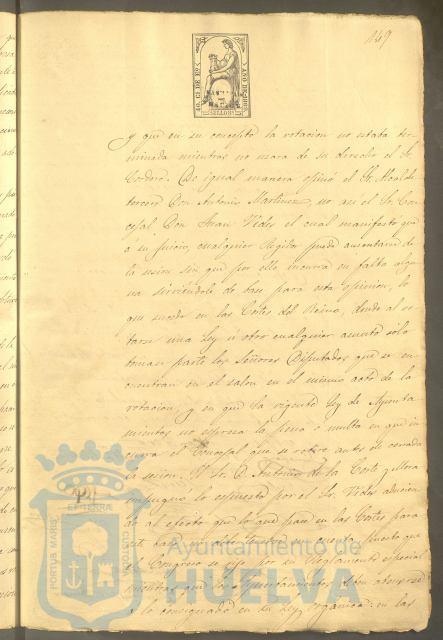 149
40. CS DE Eº
AÑO DE 186
SELLO 9º
y que en su concepto la votacion no estaba ter-
minada mientras no usara de su derecho el Sr.
Cordero. De igual manera opinó el Sr. Alcalde
tercero Don Antonio Martinez, no asi el Sr. Con-
cejal Don Juan Vides el cual manifestó que
á su juicio, cualquier Regidor puede ausentarse de
la sesion sin que por ello incurra en falta algu-
na sirviéndole de base para esta opinion, lo
que sucede en las Cortes del Reino, donde al vo-
tarse una Ley ú otro cualquier asunto solo
toman parte los Señores Diputados que se en-
cuentran en el salon en el mismo acto de la
votacion, y en que la vigente Ley de Ayunta-
mientos no espresa la pena ó multa en que in-
curra el Concejal que se retire antes de cerrada
la sesion. El Sr. D. Antonio de la Corte y Llera
impugnó lo espuesto por el Sr. Vides aducien-
do al efecto que lo que pasa en las Cortes para
este caso no debe tenerse en cuenta, puesto que
el Congreso se rije por su Reglamento especial
mientras que los Ayuntamientos deben atenerse
á lo consignado en su Ley orgánica: en las
PORTUS MARIS
ET TERRÆ
CUSTODIA
Ayuntamiento de
HUELVA